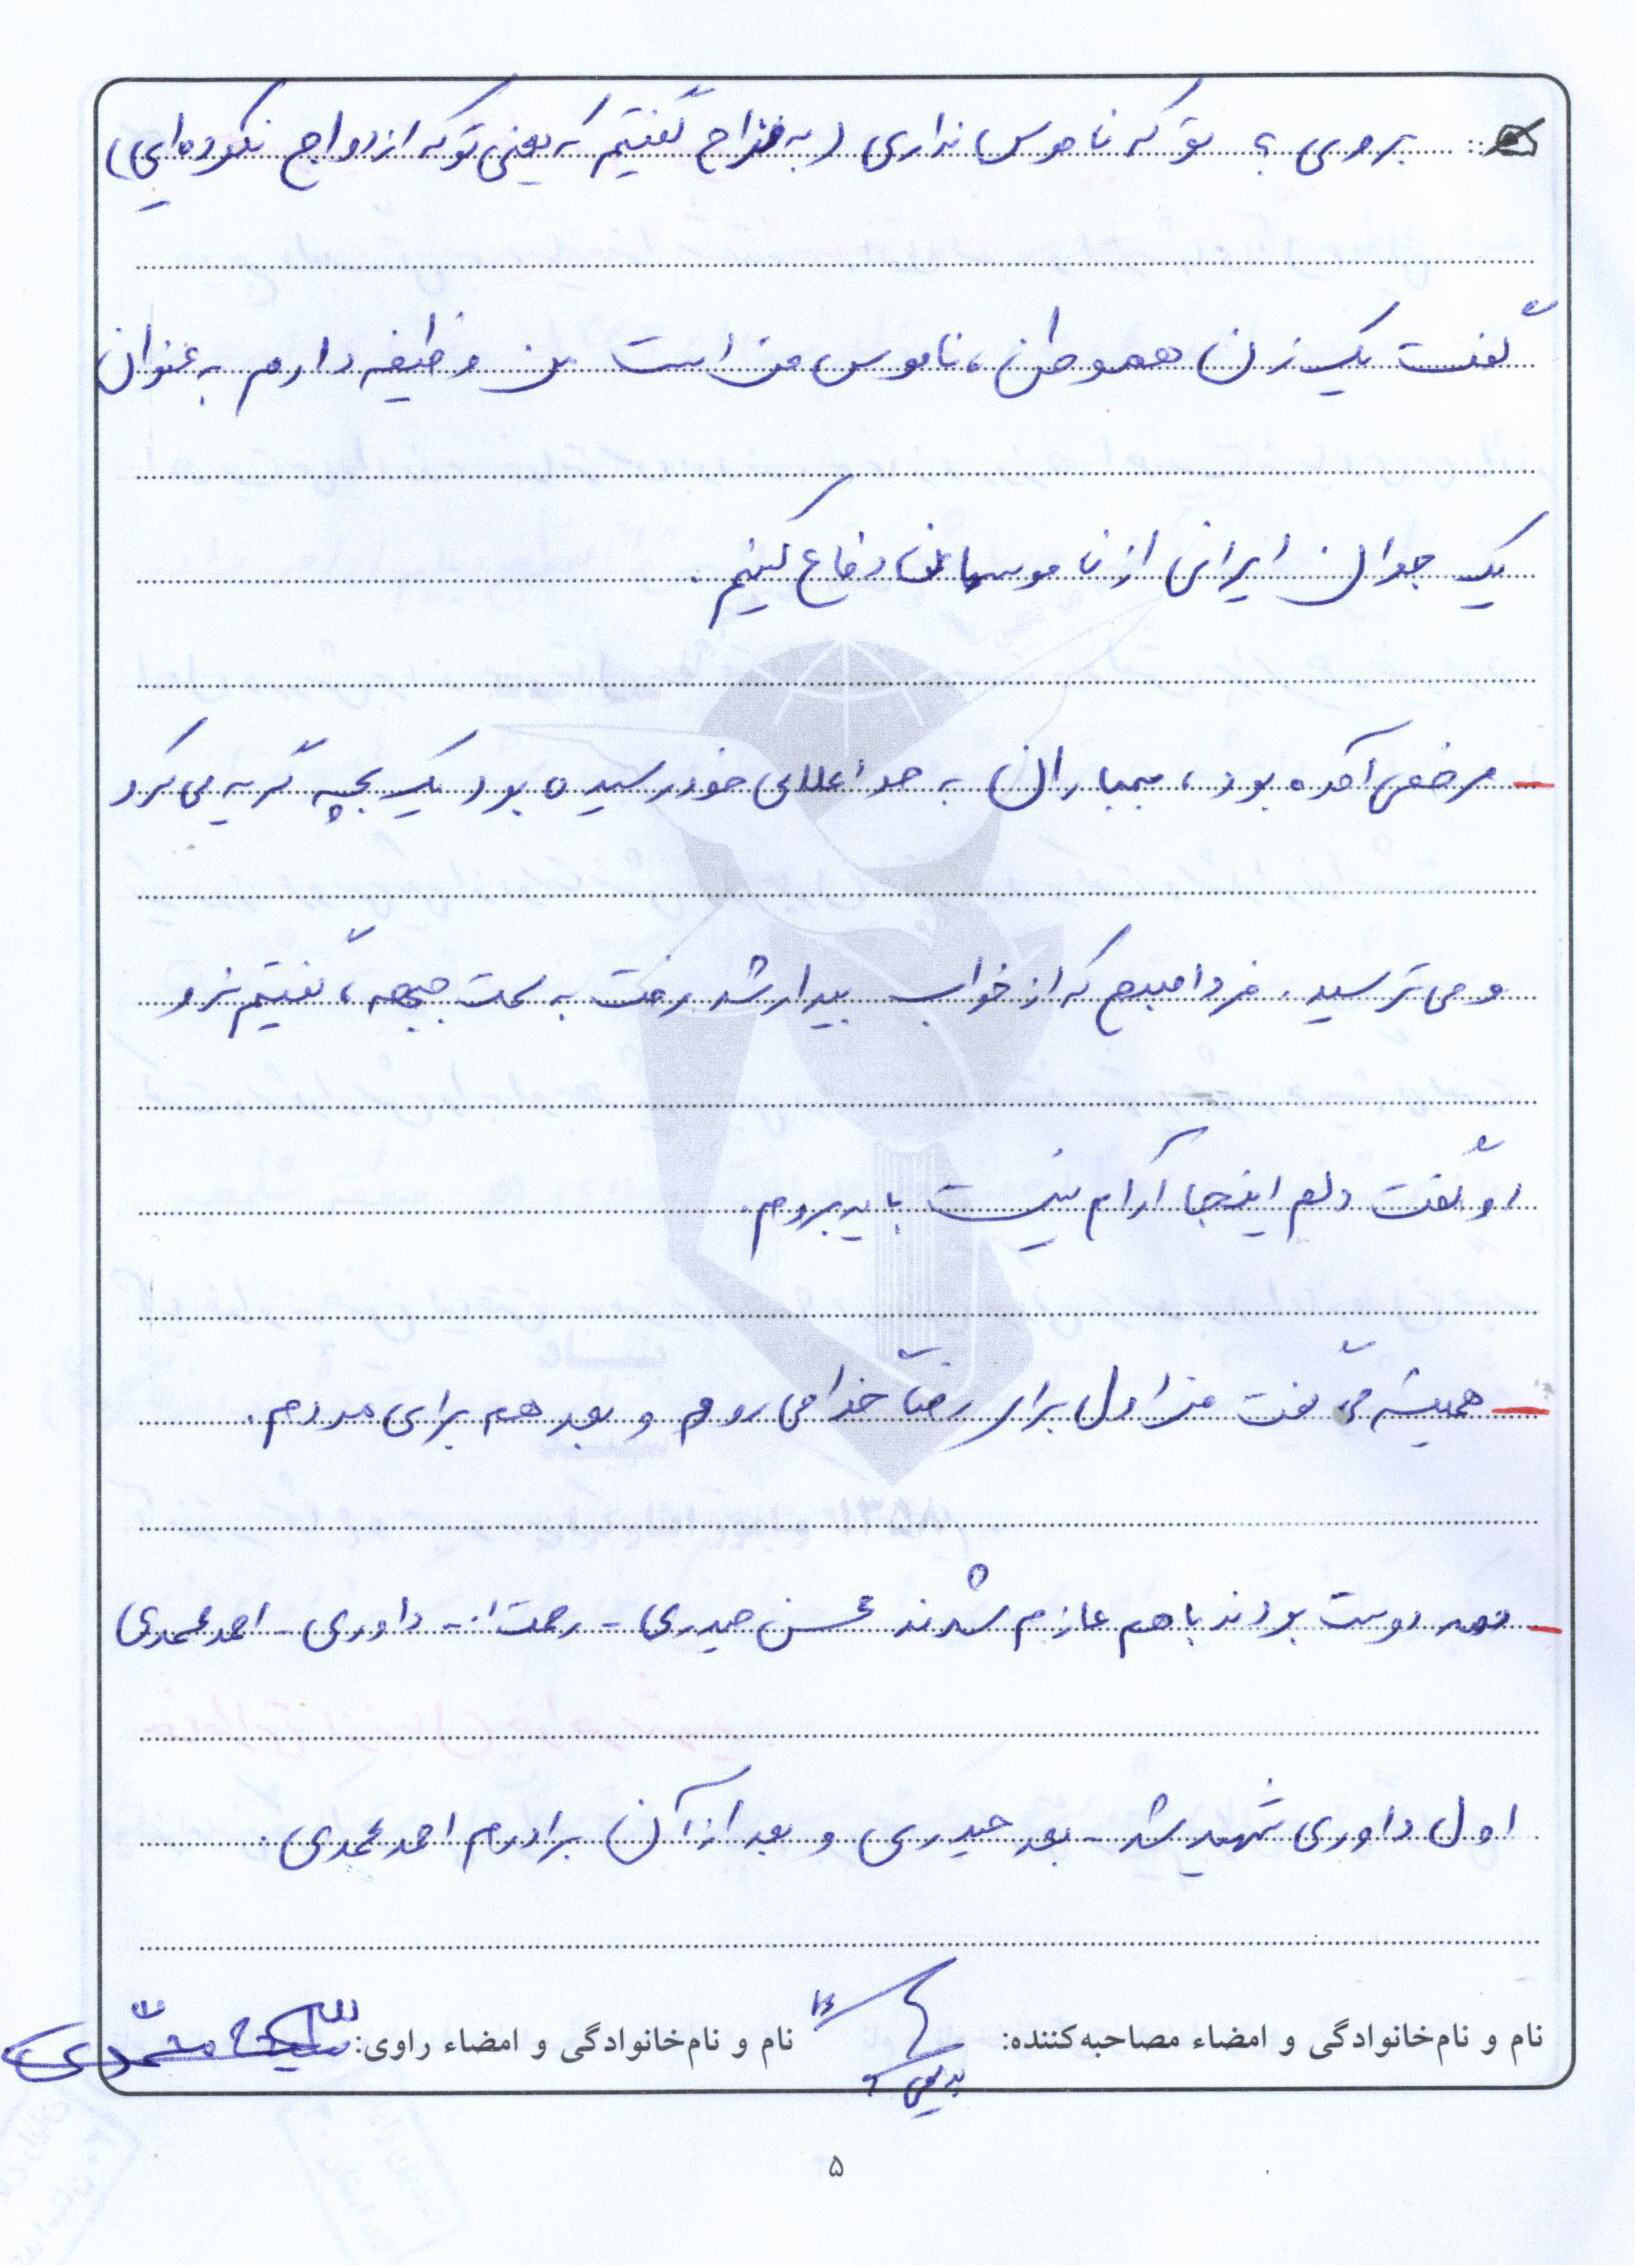 بروی؟ تو که ناموس نداری (به مزاح گفتیم که یعنی تو که ازدواج نکرده‌ای)
گفت یک زن هموطن، ناموس من است من وظیفه دارم به عنوان
یک جوان ایرانی از ناموسمان دفاع کنیم.
– مرخصی آمده بود، بمباران به حد اعلای خود رسیده بود یک بچه گریه می‌کرد
و می ترسید. فردا صبح که از خواب بیدار شد رفت به سمت جبهه، گفتیم نرو
او گفت دلم اینجا آرام نیست باید بروم.
– همیشه می گفت من اول برای رضای خدا می روم و بعد هم برای مردم.
– دوست بودند با هم عازم شدند محسن حیدری - رحمت ا... - داوری - احمد محمدی
اول داوری شهید شد - بعد حیدری و بعد از آن برادرم احمد محمدی.
نام و نام‌خانوادگی و امضاء مصاحبه‌کننده: نام و نام‌خانوادگی و امضاء راوی: سکینه محمدی
۵